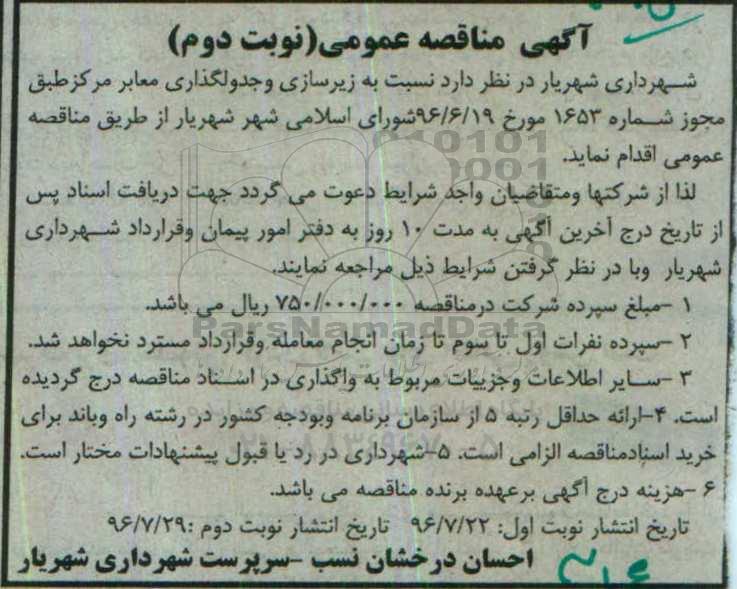 آگهی مناقصه عمومی(نوبت دوم)
شهرداری شهریار در نظر دارد نسبت به زیرسازی وجدولگذاری معابر مرکزطبق
مجوز شماره ۱۶۵۳ مورخ ۹۶/۶/۱۹شورای اسلامی شهر شهریار از طریق مناقصه
عمومی اقدام نماید.
لذا از شرکتها ومتقاضیان واجد شرایط دعوت می گردد جهت دریافت اسناد پس
از تاریخ درج آخرین آگهی به مدت ۱۰ روز به دفتر امور پیمان وقرارداد شهرداری
شهریار وبا در نظر گرفتن شرایط ذیل مراجعه نمایند.
۱ -مبلغ سپرده شرکت درمناقصه ۷۵۰/۰۰۰/۰۰۰ ریال می باشد.
ParsNamadData
۲ -سپرده نفرات اول تا سوم تا زمان انجام معامله وقرارداد مسترد نخواهد شد.
۳ -سایر اطلاعات وجزییات مربوط به واگذاری در اسناد مناقصه درج گردیده
است. ۴-ارائه حداقل رتبه ۵ از سازمان برنامه وبودجه کشور در رشته راه وباند برای
خرید اسنادمناقصه الزامی است. ۵-شهرداری در رد یا قبول پیشنهادات مختار است.
۶ -هزینه درج آگهی برعهده برنده مناقصه می باشد.
تاریخ انتشار نوبت اول: ۹۶/۷/۲۲ تاریخ انتشار نوبت دوم :۹۶/۷/۲۹
احسان درخشان نسب -سرپرست شهرداری شهریار